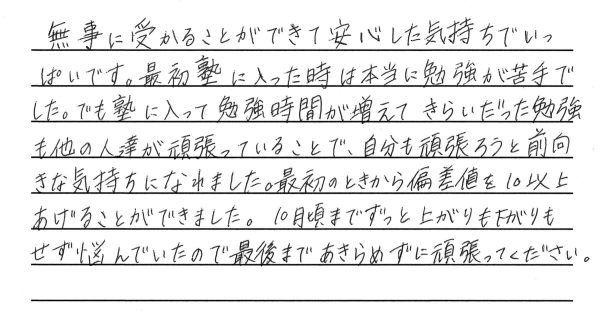 無事に受かることができて安心した気持ちでいっ
ぱいです。最初塾に入った時は本当に勉強が苦手で
した。でも塾に入って勉強時間が増えてきらいだった勉強
も他の人達が頑張っていることで、自分も頑張ろうと前向
きな気持ちになれました。最初のときから偏差値を10以上
あげることができました。10月頃までずっと上がりも下がりも
せず悩んでいたので最後まであきらめずに頑張ってください。